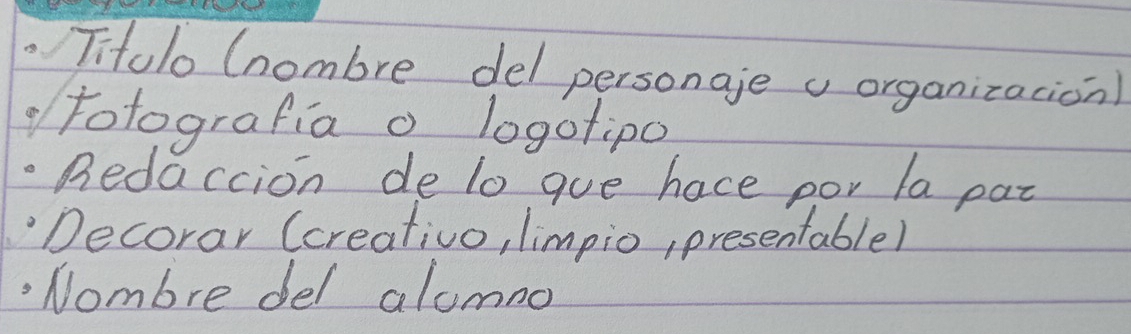 • Titulo (nombre del personaje u organización)
• Fotografía o logotipo
• Redacción de lo que hace por la paz
• Decorar (creativo, limpio, presentable)
• Nombre del alumno